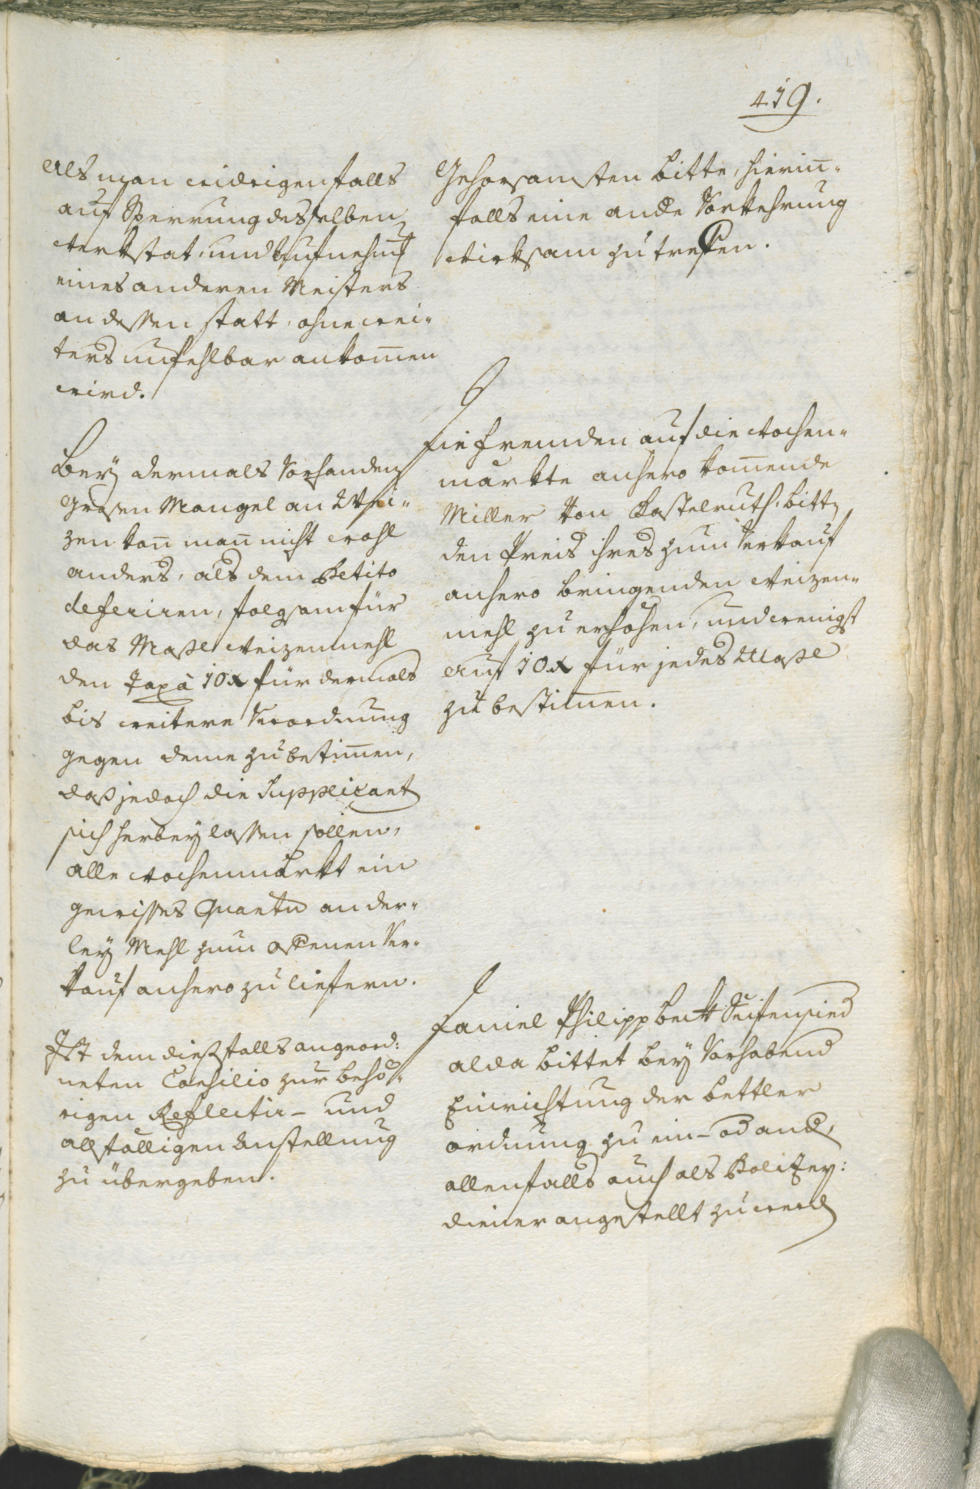 419.
Als man widrigenfalls
auf Sperrung desselben
Werkstat, und Aufnehmung
eines anderen Meisters
an dessen statt, ohne wei-
ters unfehlbar ankommen
wird.
Bey dermals vorhanden
grosen Mangel an Wei-
zen kan man nicht wohl
anders, als dem Petito
deferiren, folgsam für
das Maßl Weizenmehl
den Tax à 10 x für dermals
bis weitere Verordnung
gegen deme zu bestimen,
daß jedoch die Supplicant
sich herbey lassen sollen,
alle Wochenmärkt ein
gewisses Quantu an der-
ley Mehl zum offenen Ver-
kauf anhero zu liefern.
Ist dem dießfalls angeord-
neten Consilio zur behö-
rigen Reflectir- und
allfälligen Anstellung
zu übergeben.
Gehorsamsten bitte, hierin-
falls eine ande Vorkehrung
wirksam zu treffen.
Die fremden auf die Wochen-
märkte anhero komende
Miller von Kastelruth, bitt
den Preis ihres zum Verkauf
anhero bringenden Weizen-
mehl zu erhöhen, und wenigst
auf 10 x für jedes Maßl
zu bestimen.
Daniel Philipp Beckh Seifensied
alda bittet bey vorhabend
Einrichtung der bettler
ordnung zu ein- od and,
allenfalls auch als Polizey-
diener angestellt zu werd